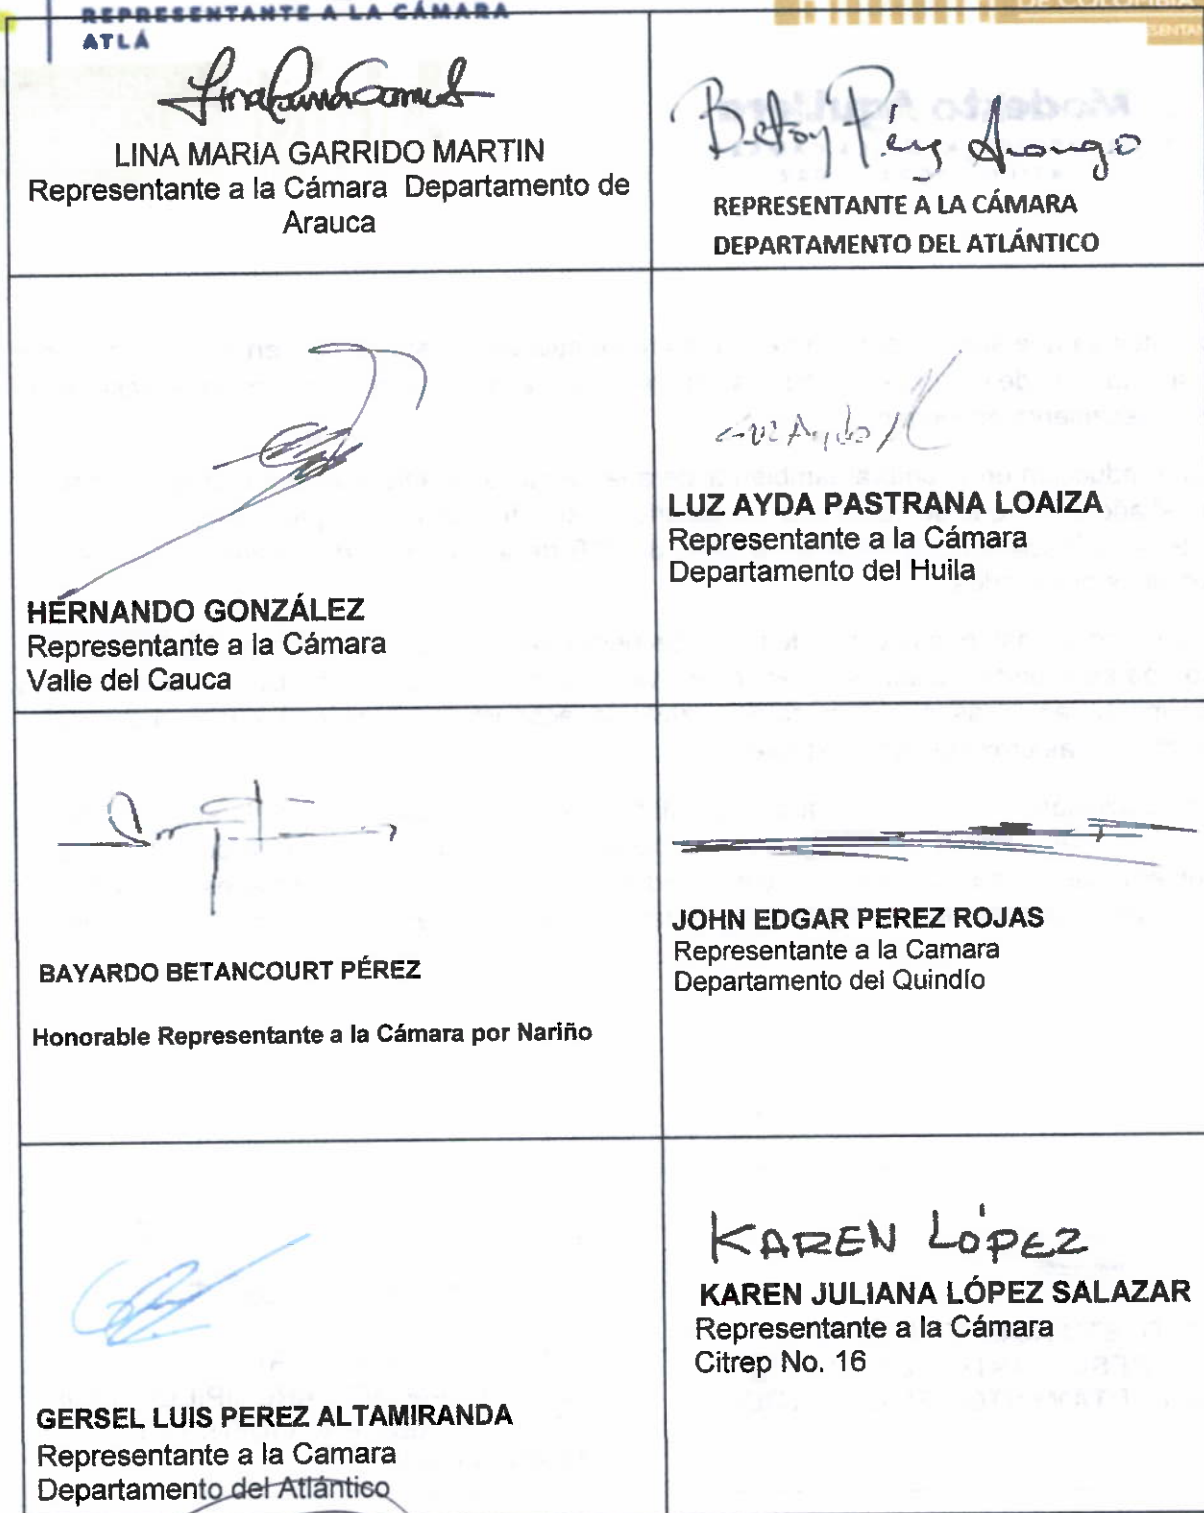 REPRESENTANTE A LA CÁMARA
ATLÁ
DE COLOMBIA
LINA MARIA GARRIDO MARTIN
Representante a la Cámara Departamento de
Arauca
Betsy Pérez Arango
REPRESENTANTE A LA CÁMARA
DEPARTAMENTO DEL ATLÁNTICO
HERNANDO GONZÁLEZ
Representante a la Cámara
Valle del Cauca
LUZ AYDA PASTRANA LOAIZA
Representante a la Cámara
Departamento del Huila
BAYARDO BETANCOURT PÉREZ
Honorable Representante a la Cámara por Nariño
JOHN EDGAR PEREZ ROJAS
Representante a la Camara
Departamento del Quindío
GERSEL LUIS PEREZ ALTAMIRANDA
Representante a la Camara
Departamento del Atlántico
KAREN LÓPEZ
KAREN JULIANA LÓPEZ SALAZAR
Representante a la Cámara
Citrep No. 16